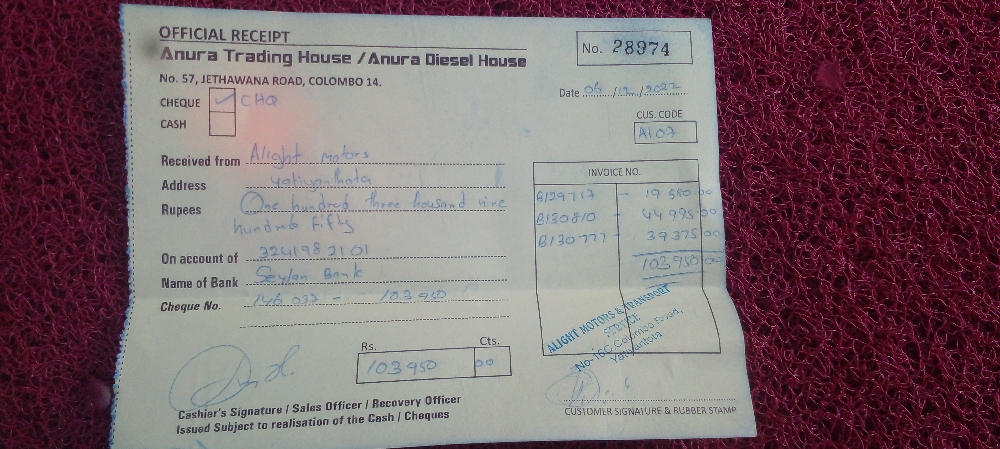 OFFICIAL RECEIPT
No. 28974
Anura Trading House / Anura Diesel House
No. 57, JETHAWANA ROAD, COLOMBO 14.
Date 06/12/2022
CHEQUE ✓ CHQ
CASH
CUS. CODE
A107
Received from Alight Motors
Address Yatiyanthota
Rupees One hundred three thousand nine
hundred fifty
INVOICE NO.
B129717 - 19 580 00
B130810 - 44 995 00
B130777 - 39 375 00
103 950 00
On account of 324198 2101
Name of Bank Seylan Bank
Cheque No. - 103 950
ALIGHT MOTORS & TRANSPORT
SERVICE
Colombo Road,
Yatiyantota
Rs. Cts.
103 950 00
Cashier's Signature / Sales Officer / Recovery Officer
Issued Subject to realisation of the Cash / Cheques
CUSTOMER SIGNATURE & RUBBER STAMP